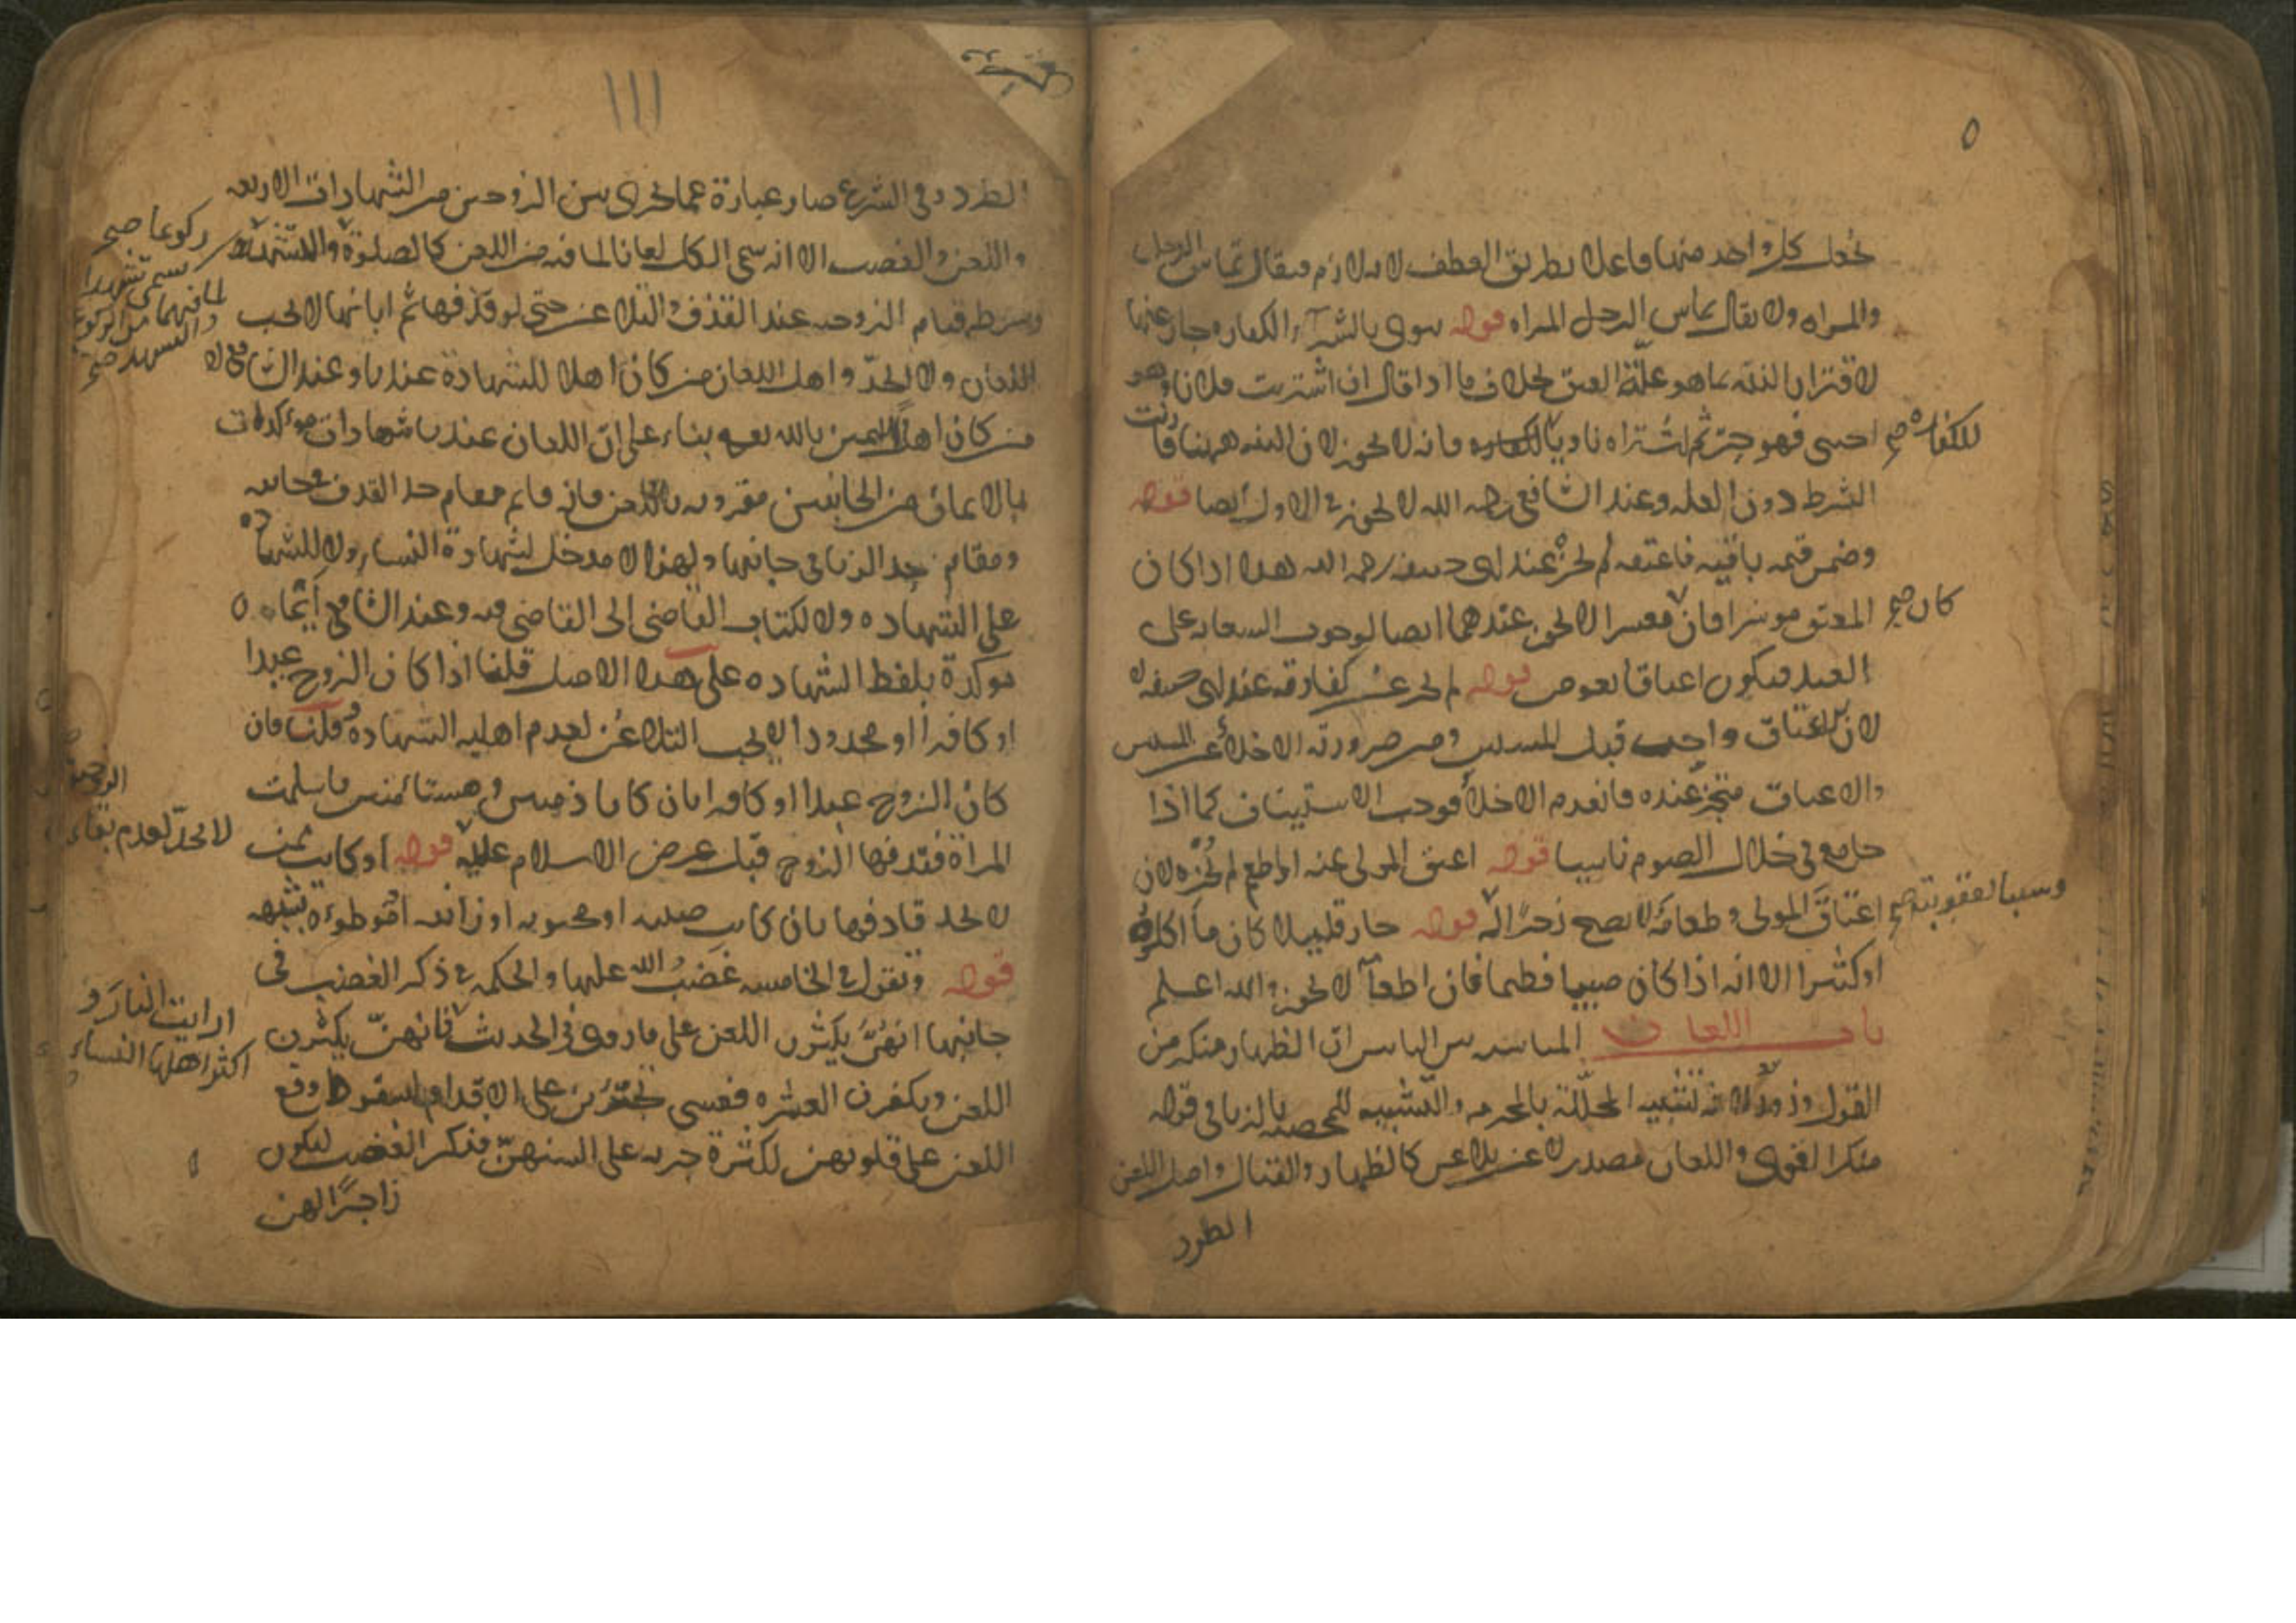 يجعل كل واحد منهما فاعلا بطريق العطف لانه لازم فيقال تماس الرجل
والمراه ولا يقال تماس الرجل المراه قوله نوى بالشرآء الكفاره جاز عنها
لاقتران النية بما هو علّة العتق بخلاف ما اذا قال ان اشتريت فلانا وهو
احسى فهو حرّ ثم اشتراه ناويا فانه لا يجوز لان النيه ههنا قارنت
للكفاره صح
الشرط دون العله وعند الشافعي رحمه الله لا يجوز في الاول ايضا قوله
وضمن قيمه باقيه فاعتقه لم يجز عند ابي حنيفه رحمه الله هذا اذا كان
المعتق موسرا فان معسرا لا يجوز عندهما ايضا لوجوب السعايه على
كان صح
العبد فيكون اعتاقا بعوض قوله لم يجز عن كفارته عند ابي حنيفه
لان الاعتاق واجب قبل المسيس ومن ضرورته الاخلاء عن المسيس
والاعتاق متجز عنده فانعدم الاخلاء فوجب الاستيناف كما اذا
جامع في خلال الصوم ناسيا قوله اعتق المولى عنه او اطعم لم يجزه لان
اعتاق المولى وطعامه لا يصح زجرا له قوله جاز قليلا كان ما اكلوه
وسببا لعقوبته صح
او كثيرا الا انه اذا كان صبيا فطيما فان اطعامه لا يجوز والله اعلم
باب اللعان المناسبه بين البابين ان الظهار منكر من
القول وزور لانه تشبيه المحللة بالمحرمه والتشبيه للمحصنه بالزنا في قوله
منكرا لقوى واللعان مصدر لاعن يلاعن كالظهار والقتال واصل اللعن
الطرد
١١١
الطرد وفي الشرع صار عبارة عما يجرى بين الزوجين من الشهادات الاربعه
واللعن والغضب الا انه سمى الكل لعانا لما فيه من اللعن كالصلوة والتشهد
ركوعا صح
يسمى تشهدا
لما فيهما من الركوع
والتشهد صح
وشرطه قيام الزوجيه عند القذف والتلاعن حتى لو قذفها ثم ابانها لا يجب
اللعان ولا الحدّ واهل اللعان من كان اهلا للشهادة عندنا وعند الشافعي
من كان اهلا لليمين بالله بناء على ان اللعان عندنا شهادات مؤكدات
بالايمان من الجانبين مقرونه باللعن فانه قايم مقام حد القذف في جانبه
ومقام حد الزنا في جانبها ولهذا لا مدخل لشهادة النساء ولا للشهادة
على الشهاده ولا لكتاب القاضى الى القاضى فيه وعند الشافعي ايمان
موكدة بلفظ الشهاده على هذا الاصل قلنا اذا كان الزوج عبدا
او كافرا او محدودا لا يجب التلاعن لعدم اهليه الشهادة وقلنا فان
كان الزوج عبدا او كافرا بان كانا ذميين ومستامنين فاسلمت
المراة فقذفها الزوج قبل عرض الاسلام عليه قوله او كانت ممن
الزوجية
لا يحدّ لعدم بقاء
لا يحد قاذفها بان كانت صبيه او مجنونه او زانيه او موطوءة بشبهه
قوله وتقول في الخامسه غضب الله عليها والحكمه في ذكر الغضب في
جانبها انهنّ يكثرن اللعن على ما روى في الحديث فانهنّ يكثرن
ارايت النار و
اكثر اهلها النساء
اللعن ويكفرن العشره فعسى يجترئن على الاقدام لسقوط وقع
اللعن على قلوبهن لكثرة جريه على السنتهنّ فذكر الغضب ليكون
زاجرًا لهن